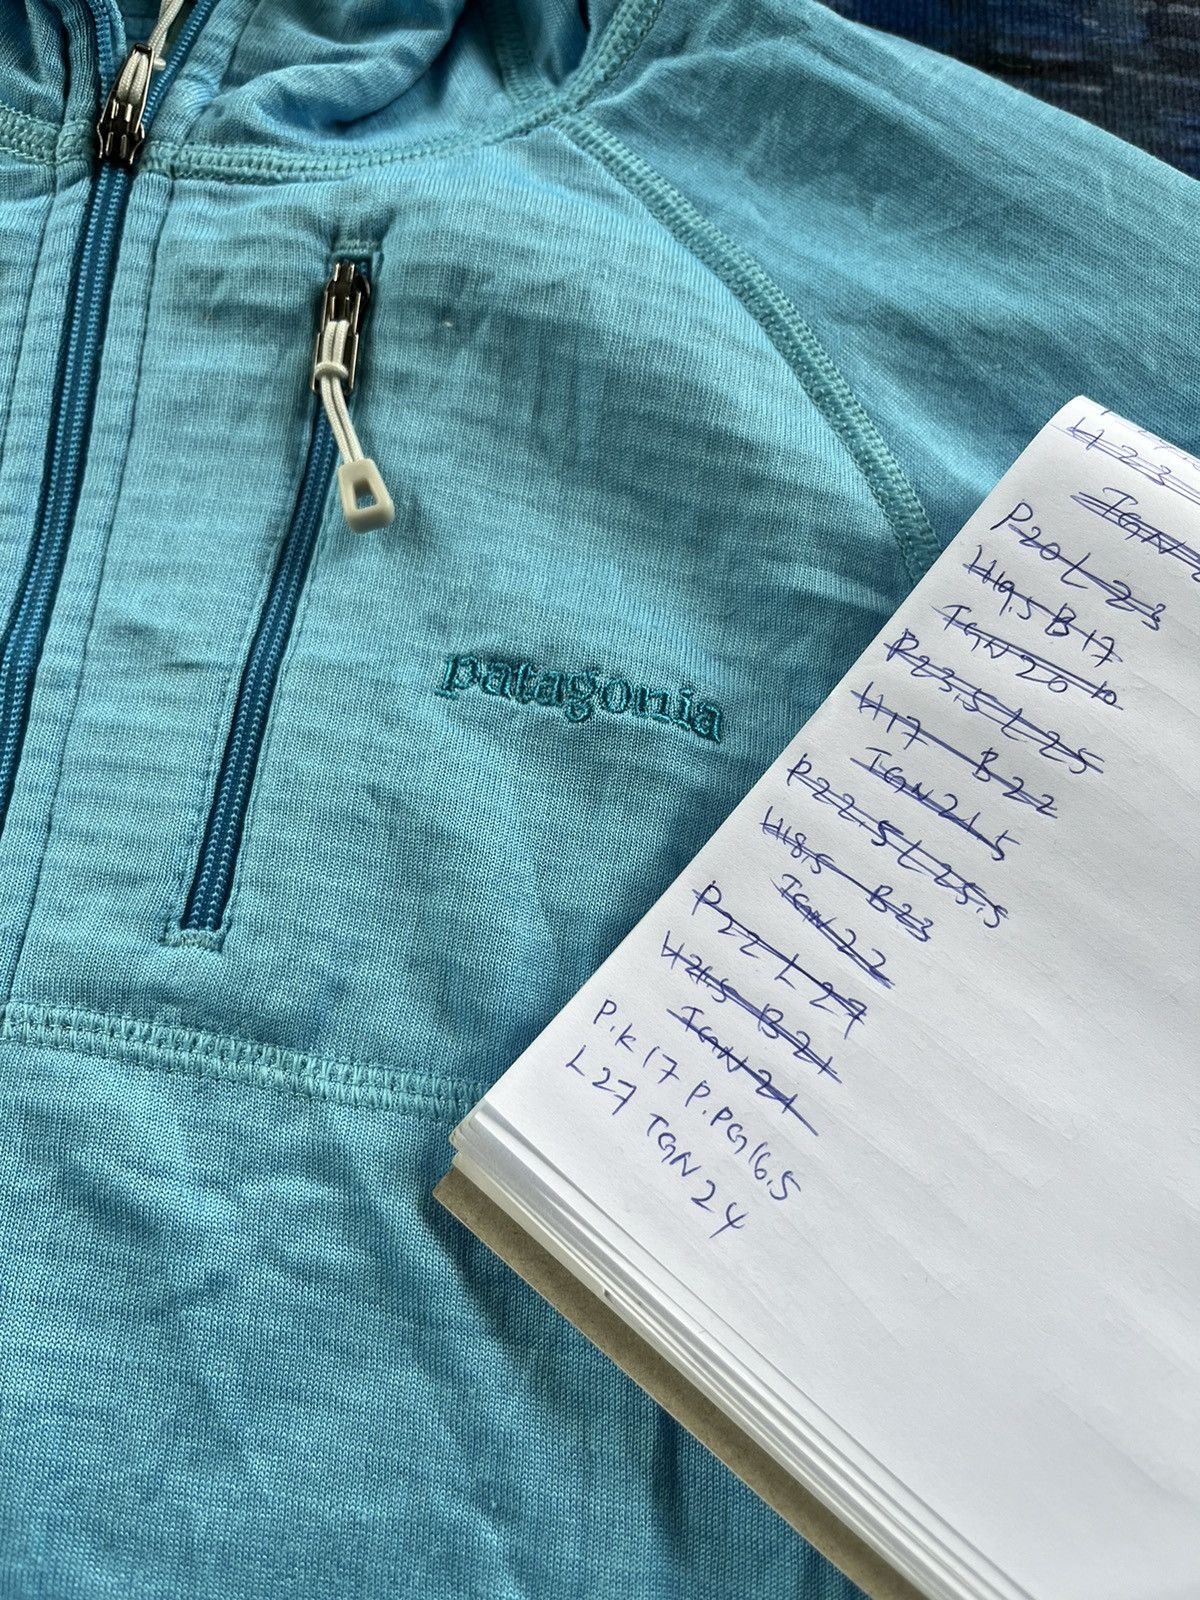 patagonia
H 23
P20 L 23
H19.5 B 17
TGN 20
P23.5 L25
H17 B22
TGN 21.5
P22.5 L25.5
H18.5 B23
TGN 22
P22 L 27
B21
TGN 21
P.K 17 P.PG16.5
L27 TGN 24